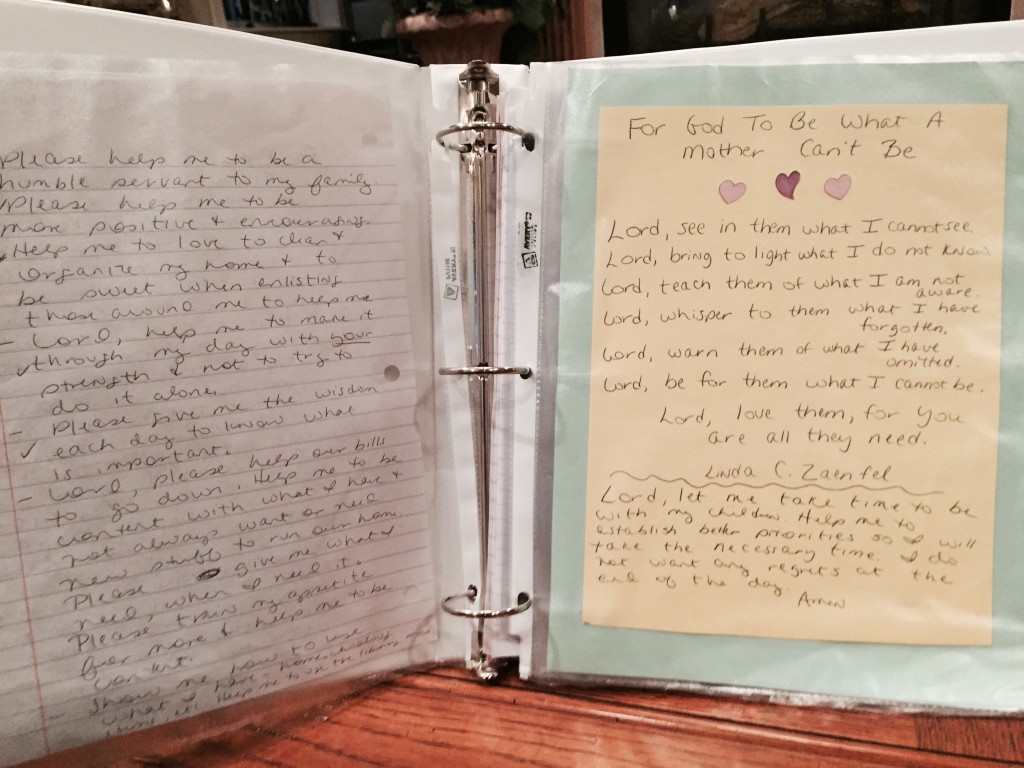 Please help me to be a
humble servant to my family.
Please help me to be
more positive & encouraging.
Help me to love to clean &
organize my home & to
be sweet when enlisting
those around me to help me
- Lord, help me to make it
through my day with your
strength & not to try to
do it alone.
- Please give me the wisdom
✓ each day to know what
is important.
- Lord, please help our bills
to go down. Help me to be
content with what I have &
not always want or need
new stuff to run our home.
Please give me what I
need, when I need it.
Please train my appetite
for more & help me to be
content.
- Show me how to use
what I have
help me to use the library
AVERY
For God To Be What A
Mother Can't Be
Lord, see in them what I cannot see.
Lord, bring to light what I do not know.
Lord, teach them of what I am not
aware.
Lord, whisper to them what I have
forgotten.
Lord, warn them of what I have
omitted.
Lord, be for them what I cannot be.
Lord, love them, for you
are all they need.
Linda C. Zaenfel
Lord, let me take time to be
with my children. Help me to
establish better priorities so I will
take the necessary time. I do
not want any regrets at the
end of the day.
Amen